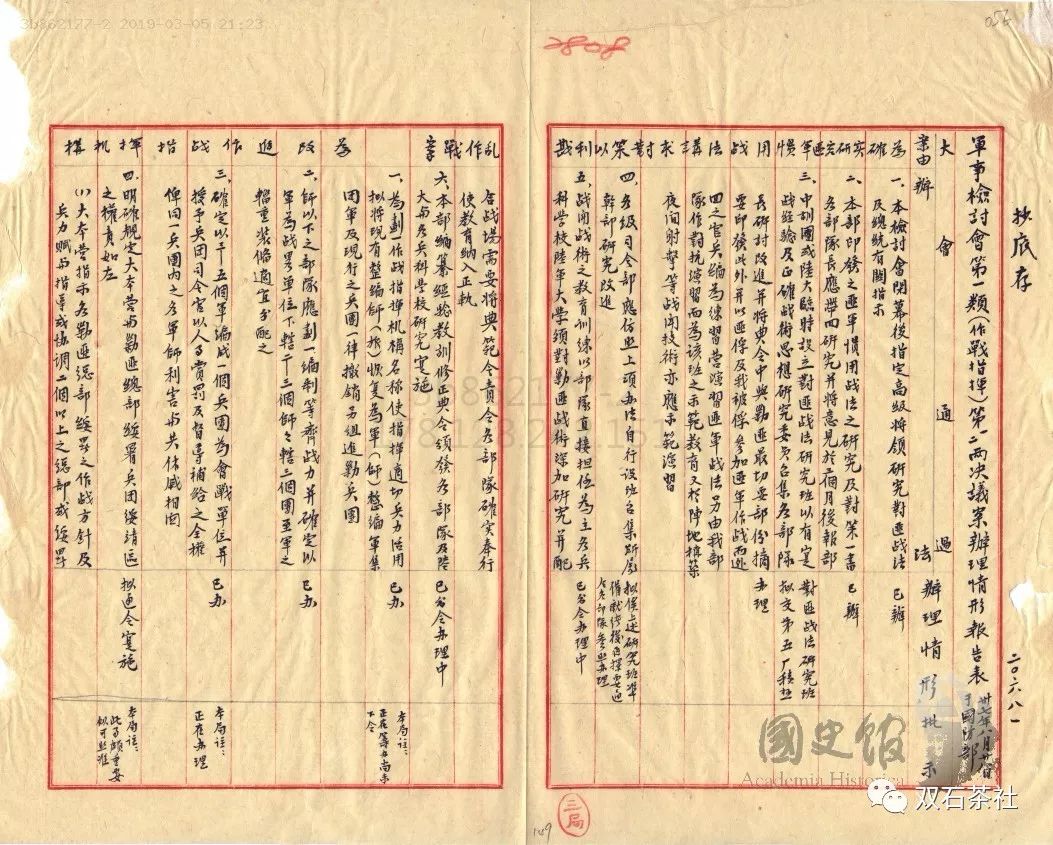 3b862177-2 2019-03-05 21:23
2808
抄底存
二〇六八一
軍事檢討會第一類(作戰指揮)第一二兩决議案辦理情形報告表
卅七年八月廿日
于國防部
案由
大會通過
辦法
辦理情形
批示
為確實研究匪慣用战法講求對策以利戡乱作戰案
一、本檢討會閉幕後指定高級將領研究對匪战法
及總統有關指示
已辦
二、本部印發之匪軍慣用战法之研究及對策一書
各部隊長應帶回研究并將意見於二個月後報部
已辦
三、中訓團或陸大臨時設立對匪战法研究班以有实
战經驗及正確战術思想研究委員召集各部隊
長研討改進并將典令中與剿匪最切要部份摘
要印發此外并以匪俘及我被俘參加匪軍作战而逃
四之官兵編為練習营演習匪軍战法另由我部
隊作對抗演習而為該班之示範教育又於陣地構築
夜间射擊等战闘技術亦應示範演習
對匪战法研究班
拟交第五厂積极
办理
四、各級司令部應仿照上項办法自行设班召集所属
幹部研究改進
拟俟上述研究班準
備就绪後再擇要通
令各部隊參照办理
五、战闘战術之教育訓練以部隊直接担任為主各兵
科学校陸軍大學须對剿匪战術深加研究并配
合战場需要将典範令责令各部隊確实奉行
使教育纳入正軌
已分令办理中
六、本部编纂經驗教訓修正典令頒發各部隊及陸
大与各兵科學校研究实施
已分令办理中
為改進作战指揮机構
一、為劃一作战指揮机構名称使指揮適切兵力活用
拟将現有整编師(旅)恢复為軍(師)整编軍集
团軍及現行之兵團一律撤銷另组進剿兵團
已办
本局註:
正在筹办尚未
下令
二、師以下之部隊應劃一编制等齊战力并確定以
軍為战畧單位下轄二——三個師々轄三個團至軍之
輜重裝備適宜分配之
已办
三、確定以二——五個軍編成一個兵团為會戰單位并
授予兵团司令官以人事賞罰及督導補給之全權
俾同一兵團内之各軍師利害与共休戚相関
已办
本局註:
正在办理
四、明確規定大本营与剿匪總部綏署兵团綏靖區
之權责如左
拟通令实施
本局註:
此事頗重要
似可照准
(1)大本营指示各剿匪總部綏署之作战方針及
兵力賦与指導或协调二個以上之總部或綏署
三局
149
056
國史館
Academia Historica
双石茶社